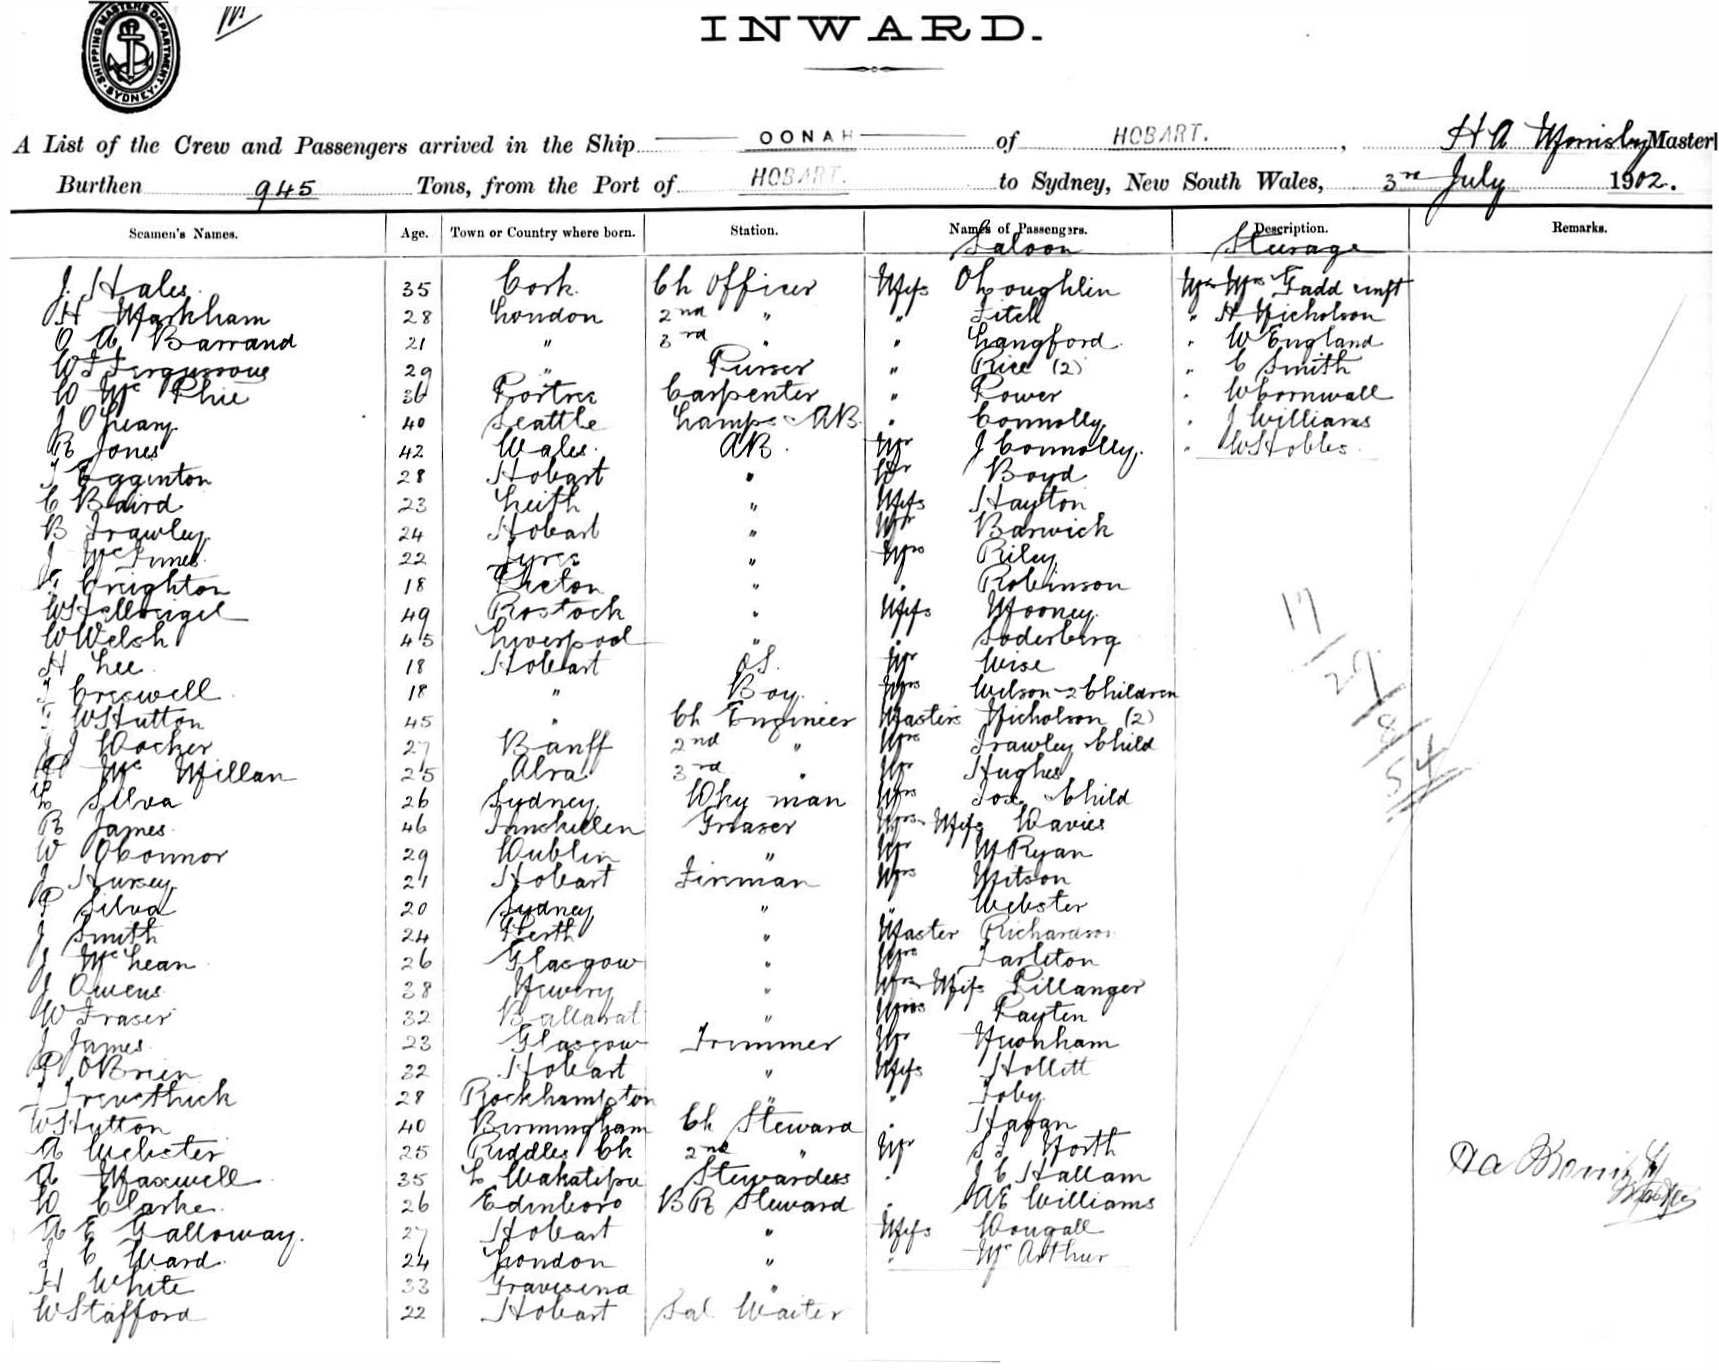 SHIPPING MASTERS DEPARTMENT SYDNEY
INWARD.
A List of the Crew and Passengers arrived in the Ship OONAH of HOBART. , H A Master
Burthen 945 Tons, from the Port of HOBART. to Sydney, New South Wales, 3rd July 1902.
Seamen's Names. Age. Town or Country where born. Station. Names of Passengers. Description. Remarks.
Saloon Steerage
J. Hales. 35 Cork. Ch Officer Miss O'Loughlin Mr Mrs Gadd inft
H Markham 28 London 2nd " " Fitch " H Nicholson
O A Barrand 21 " 3rd " " Langford. " W England
W F 29 " Purser " Rice (2) " C Smith
W Mc Phie 36 Portree Carpenter " Power " W Cornwall
J O'Leary. 40 Seattle Lamps & AB " Connolly " J Williams
R Jones 42 Wales. AB. Mr J Connolly. "
T Egginton 28 Hobart " Dr Boyd
C Baird 23 Leith " Miss Hayton
B Frawley. 24 Hobart " Mr Barwick
J 22 " Mrs Riley
Creighton 18 Picton " " Robinson
49 Rostock " Miss Mooney.
W Welsh 45 Liverpool " " Soderberg
H Lee 18 Hobart OS. Mr Wise
T Creswell 18 " Boy. Mrs Wilson & 2 Children
T W Hutton 45 " Ch Engineer Masters Nicholson (2)
J J 27 Banff 2nd " Mrs Frawley & Child
Mc Millan 25 Alva 3rd " Mr Hughes
L Silva 26 Sydney. Dky man Mrs Fox & Child
R James 46 Inniskillen Greaser Mrs & Miss Davies
W O'Connor 29 Dublin " Mr M Ryan
J Hursey 21 Hobart Fireman Mrs Mitson
P Silva 20 Sydney " " Webster
J Smith 24 Perth " Master Richardson
J McLean 26 Glasgow " Mrs Tarleton
J Owens 38 Newry " Mrs & Miss Pillanger
W Fraser 32 Ballarat " Miss Payten
J James 23 Glasgow Trimmer Mr Newnham
P O'Brien 32 Hobart " Miss Hollitt
J Trevethick 28 Rockhampton " " Toby
W Hutton 40 Birmingham Ch Steward " Hagan
A Webster 25 Riddles Ck 2nd " Mr North
A Maxwell 35 L Wakatipu Stewardess " J C Hallam
W Clarke 26 Edinboro B R Steward " A E Williams
A E Galloway. 27 Hobart " Miss Dougall
J C Ward 24 London " " Mc Arthur
H White 33 Gravesend "
W Stafford 22 Hobart Sal Waiter
17/
29/
8/
54